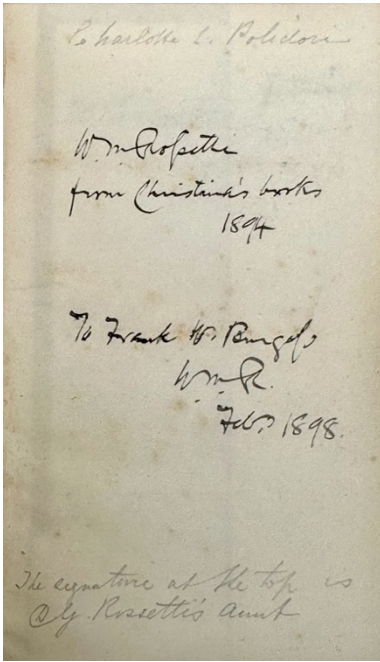 Charlotte L. Polidori
W. M. Rossetti
from Christina's books
1894
To Frank W. Burgess
W M R.
Feb. 1898.
The signature at the top is
D G. Rossetti's Aunt